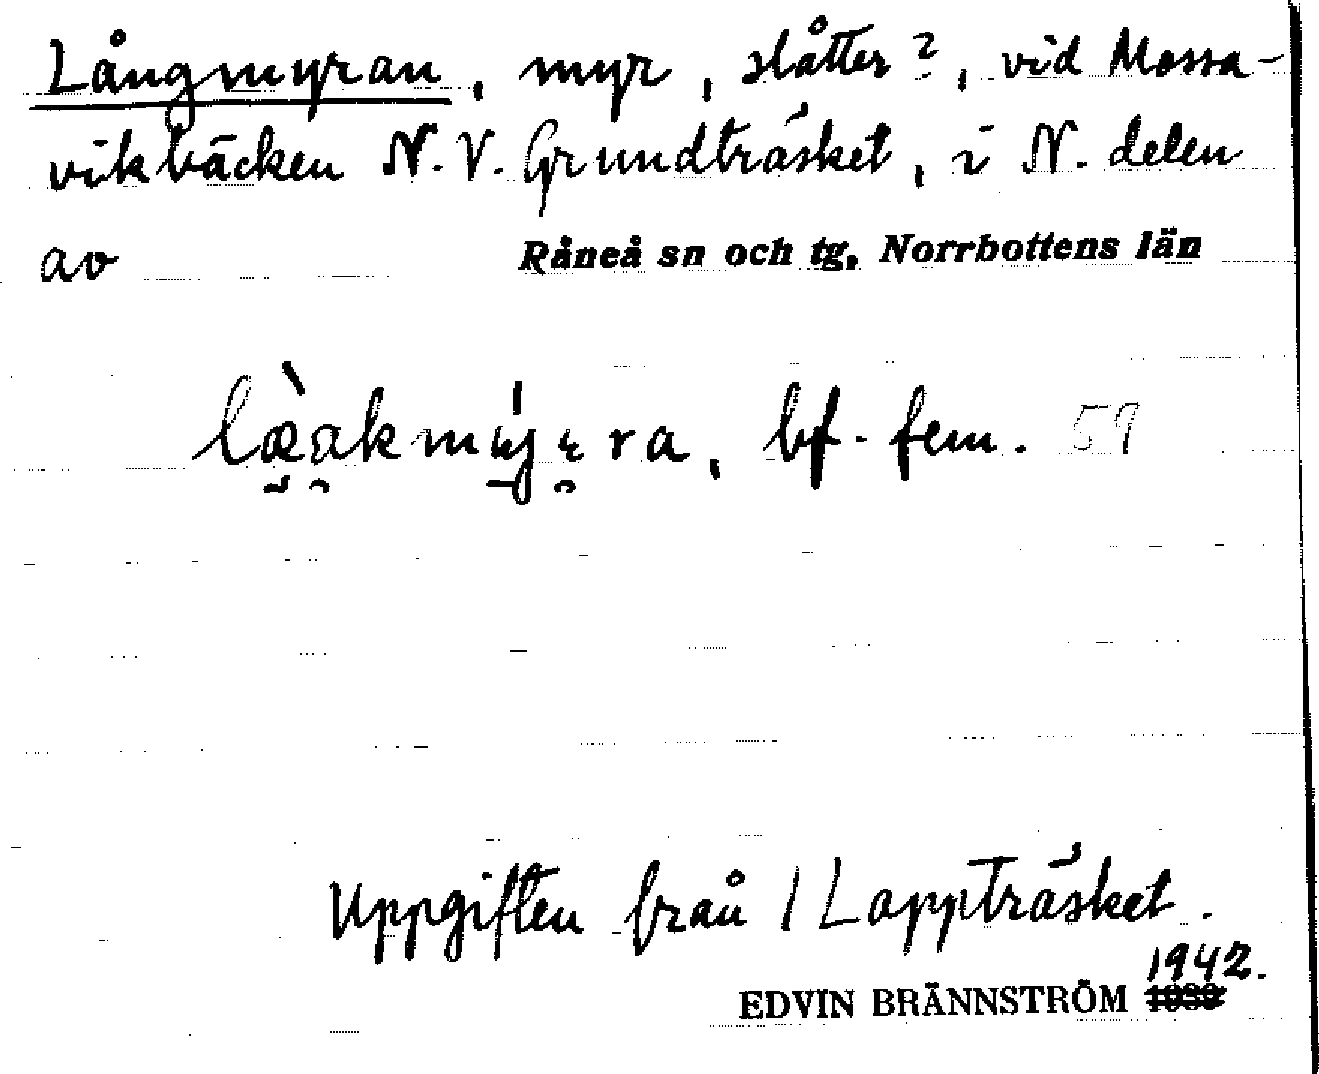 Långmyran, myr, slåtter?, vid Mossa-
vikbäcken N.V. Grundträsket, i N. delen
av Råneå sn och tg, Norrbottens län
bf. fem. 59
Uppgiften från 1 Lappträsket.
1942.
EDVIN BRÄNNSTRÖM 1939